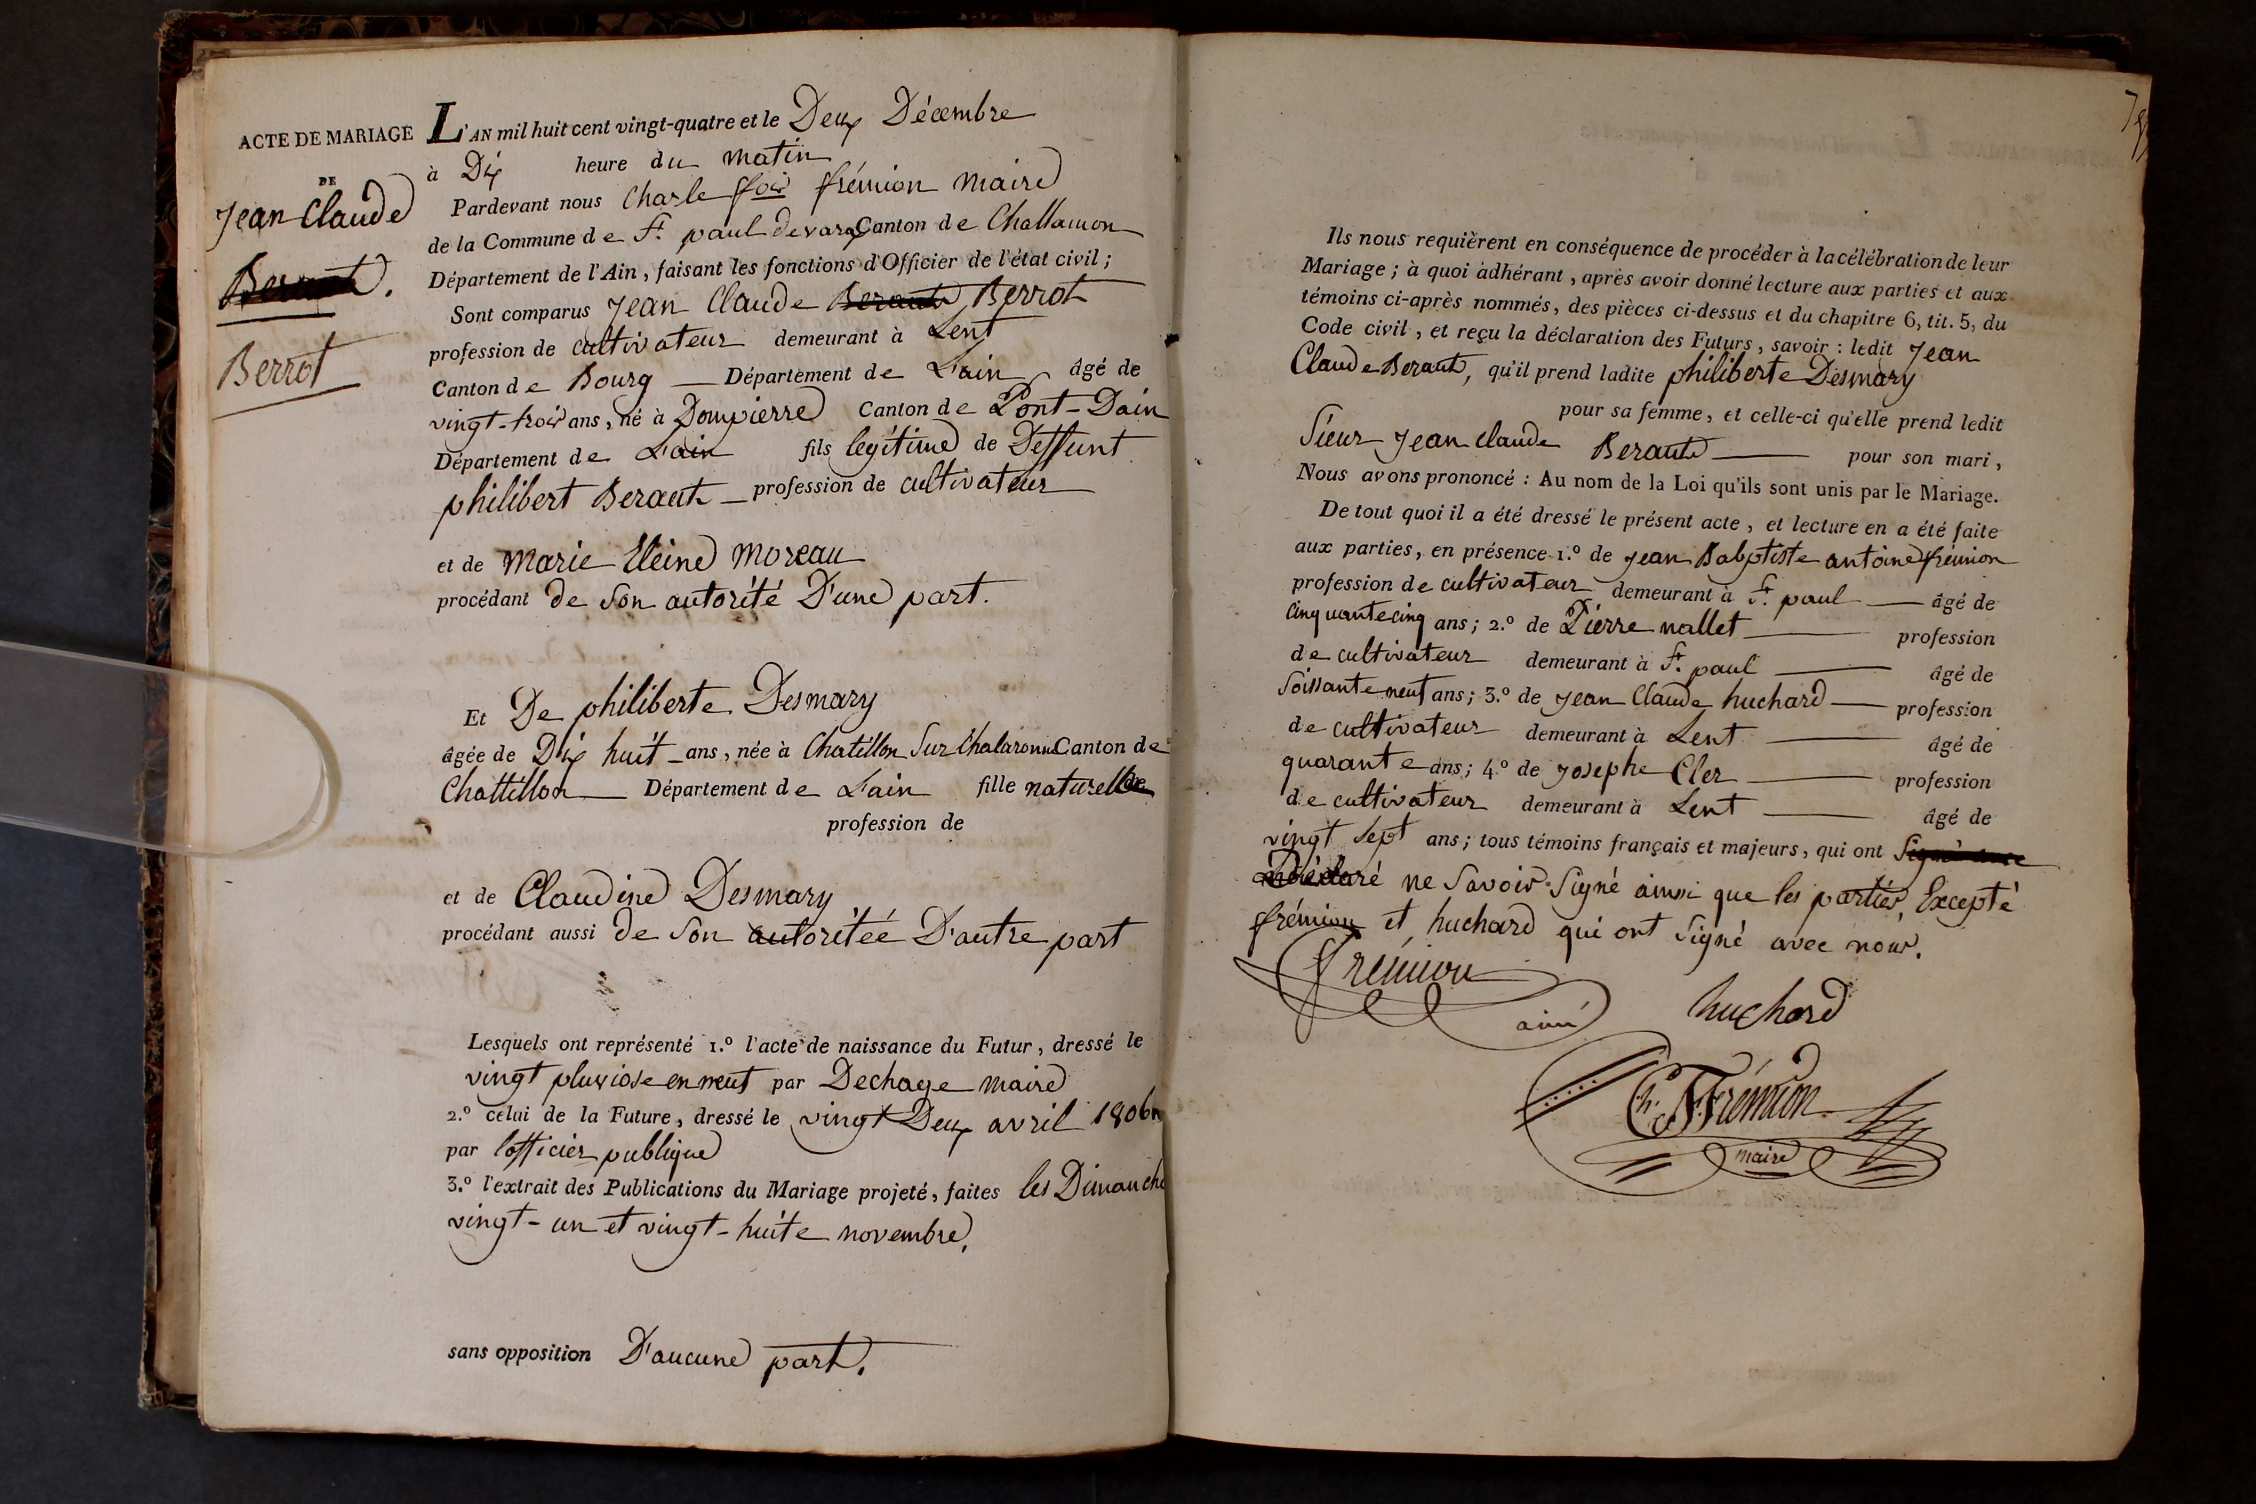 ACTE DE MARIAGE
DE
Jean Claude
Beraut.
Berrot
L'AN mil huit cent vingt-quatre et le Deux Décembre
à Dix heure du matin
Pardevant nous Charle fois frémion maire
de la Commune de St. paul devarax Canton de Challamon
Département de l'Ain, faisant les fonctions d'Officier de l'état civil;
Sont comparus Jean Claude Beraut Berrot
profession de cultivateur demeurant à Lent
Canton de Bourg Département de L'ain âgé de
vingt-trois ans, né à Dompierre Canton de Pont-Dain
Département de L'ain fils legitime de Deffunt
philibert Beraut profession de cultivateur
et de Marie Eleine Moreau
procédant de Son autorité D'une part.
Et De philiberte Desmary
âgée de Dix huit ans, née à Chatillon Sur Chalaronne Canton de
Chattillon Département de L'ain fille naturelle
profession de
et de Claudine Desmary
procédant aussi de Son autoritée D'autre part
Lesquels ont représenté 1.º l'acte de naissance du Futur, dressé le
vingt pluviose en neuf par Dechage maire
2.º celui de la Future, dressé le vingt Deux avril 1806
par l'officier publique
3.º l'extrait des Publications du Mariage projeté, faites les Dimanche
vingt-un et vingt-huite novembre,
sans opposition D'aucune part.
Ils nous requièrent en conséquence de procéder à la célébration de leur
Mariage; à quoi adhérant, après avoir donné lecture aux parties et aux
témoins ci-après nommés, des pièces ci-dessus et du chapitre 6, tit. 5, du
Code civil, et reçu la déclaration des Futurs, savoir: ledit Jean
Claude Beraut, qu'il prend ladite philiberte Desmary
pour sa femme, et celle-ci qu'elle prend ledit
Sieur Jean Claude Beraut pour son mari,
Nous avons prononcé: Au nom de la Loi qu'ils sont unis par le Mariage.
De tout quoi il a été dressé le présent acte, et lecture en a été faite
aux parties, en présence 1.º de Jean Babptiste antoine frémion
profession de cultivateur demeurant à St. paul âgé de
cinquante cinq ans; 2.º de Pierre nallet profession
de cultivateur demeurant à St. paul âgé de
Soissante neuf ans; 3.º de Jean Claude huchard profession
de cultivateur demeurant à Lent âgé de
quarante ans; 4.º de Josephe Cler profession
de cultivateur demeurant à Lent âgé de
vingt Sept ans; tous témoins français et majeurs, qui ont Signé avec
déclaré ne Savoir Signé ainsi que les parties, Excepté
frémion et huchard qui ont Signé avec nous.
frémion
ainé
huchard
Ch. F. Frémion
maire